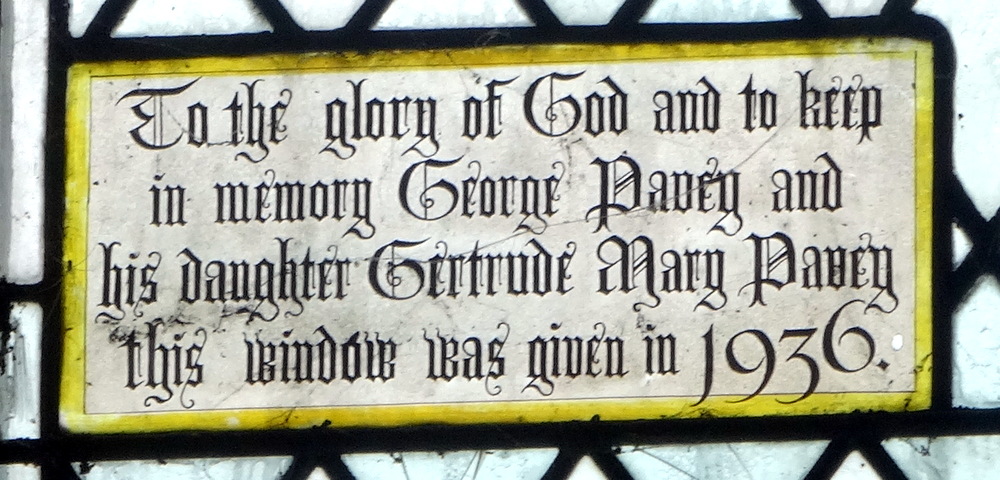 To the glory of God and to keep
in memory George Pavey and
his daughter Gertrude Mary Pavey
this window was given in 1936.